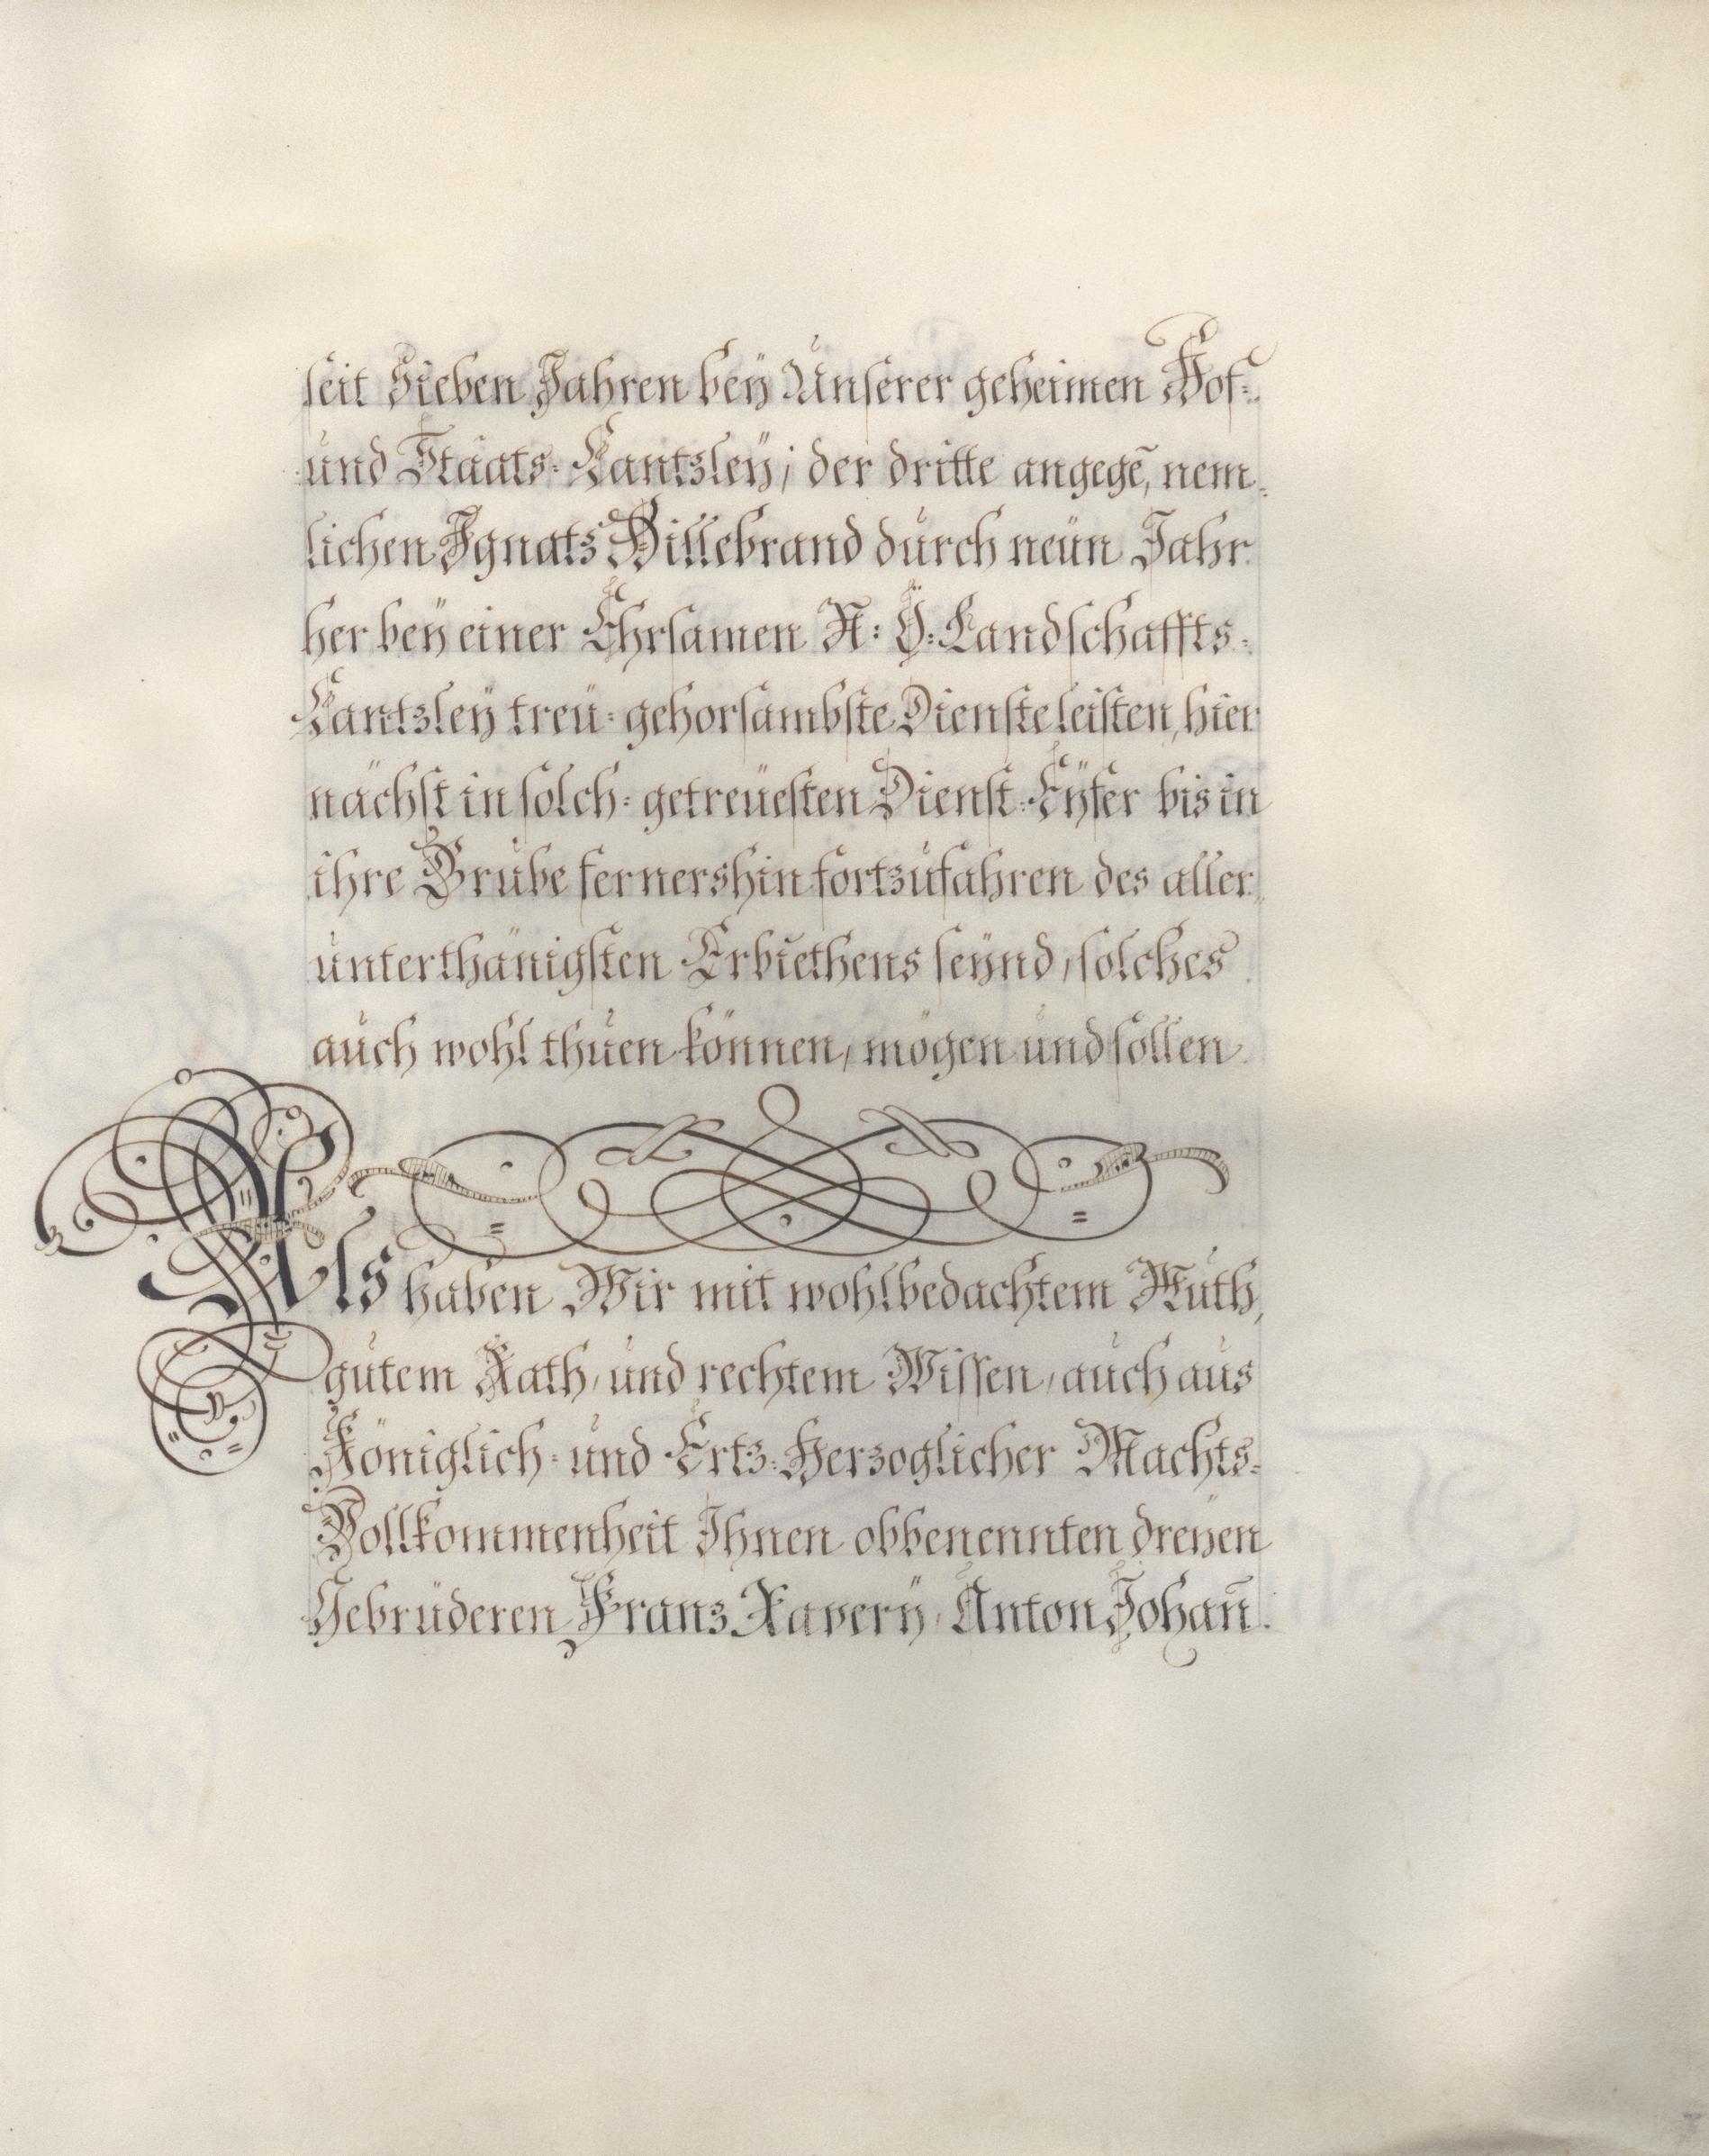 seit Sieben Jahren beÿ Unserer geheimen Hof=
und Staats=Cantzleÿ; der dritte angegē, nem=
lichen Ignatz Hillebrand durch neün Jahr
her beÿ einer Ehrsamen N: Ö: Landschaffts=
Cantzleÿ treü=gehorsambste Dienste leisten, hier
nächst in solch=getreüesten Dienst=Eÿfer bis in
ihre Grube fernershin fortzufahren des aller=
unterthänigsten Erbiethens seÿnd, solches
auch wohl thuen können, mögen und sollen
Als haben Wir mit wohlbedachtem Muth,
gutem Rath, und rechtem Wissen, auch aus
Königlich=und Ertz=Herzoglicher Machts=
Vollkommenheit Ihnen obbenennten dreÿen
Gebrüderen Franz Xaverÿ, Anton Johan̄